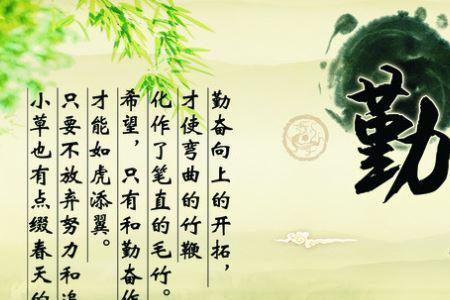 勤
勤奋向上的开拓，
才使弯曲的竹鞭
化作了笔直的毛竹。
希望，只有和勤奋作
才能如虎添翼。
只要不放弃努力和追
小草也有点缀春天的